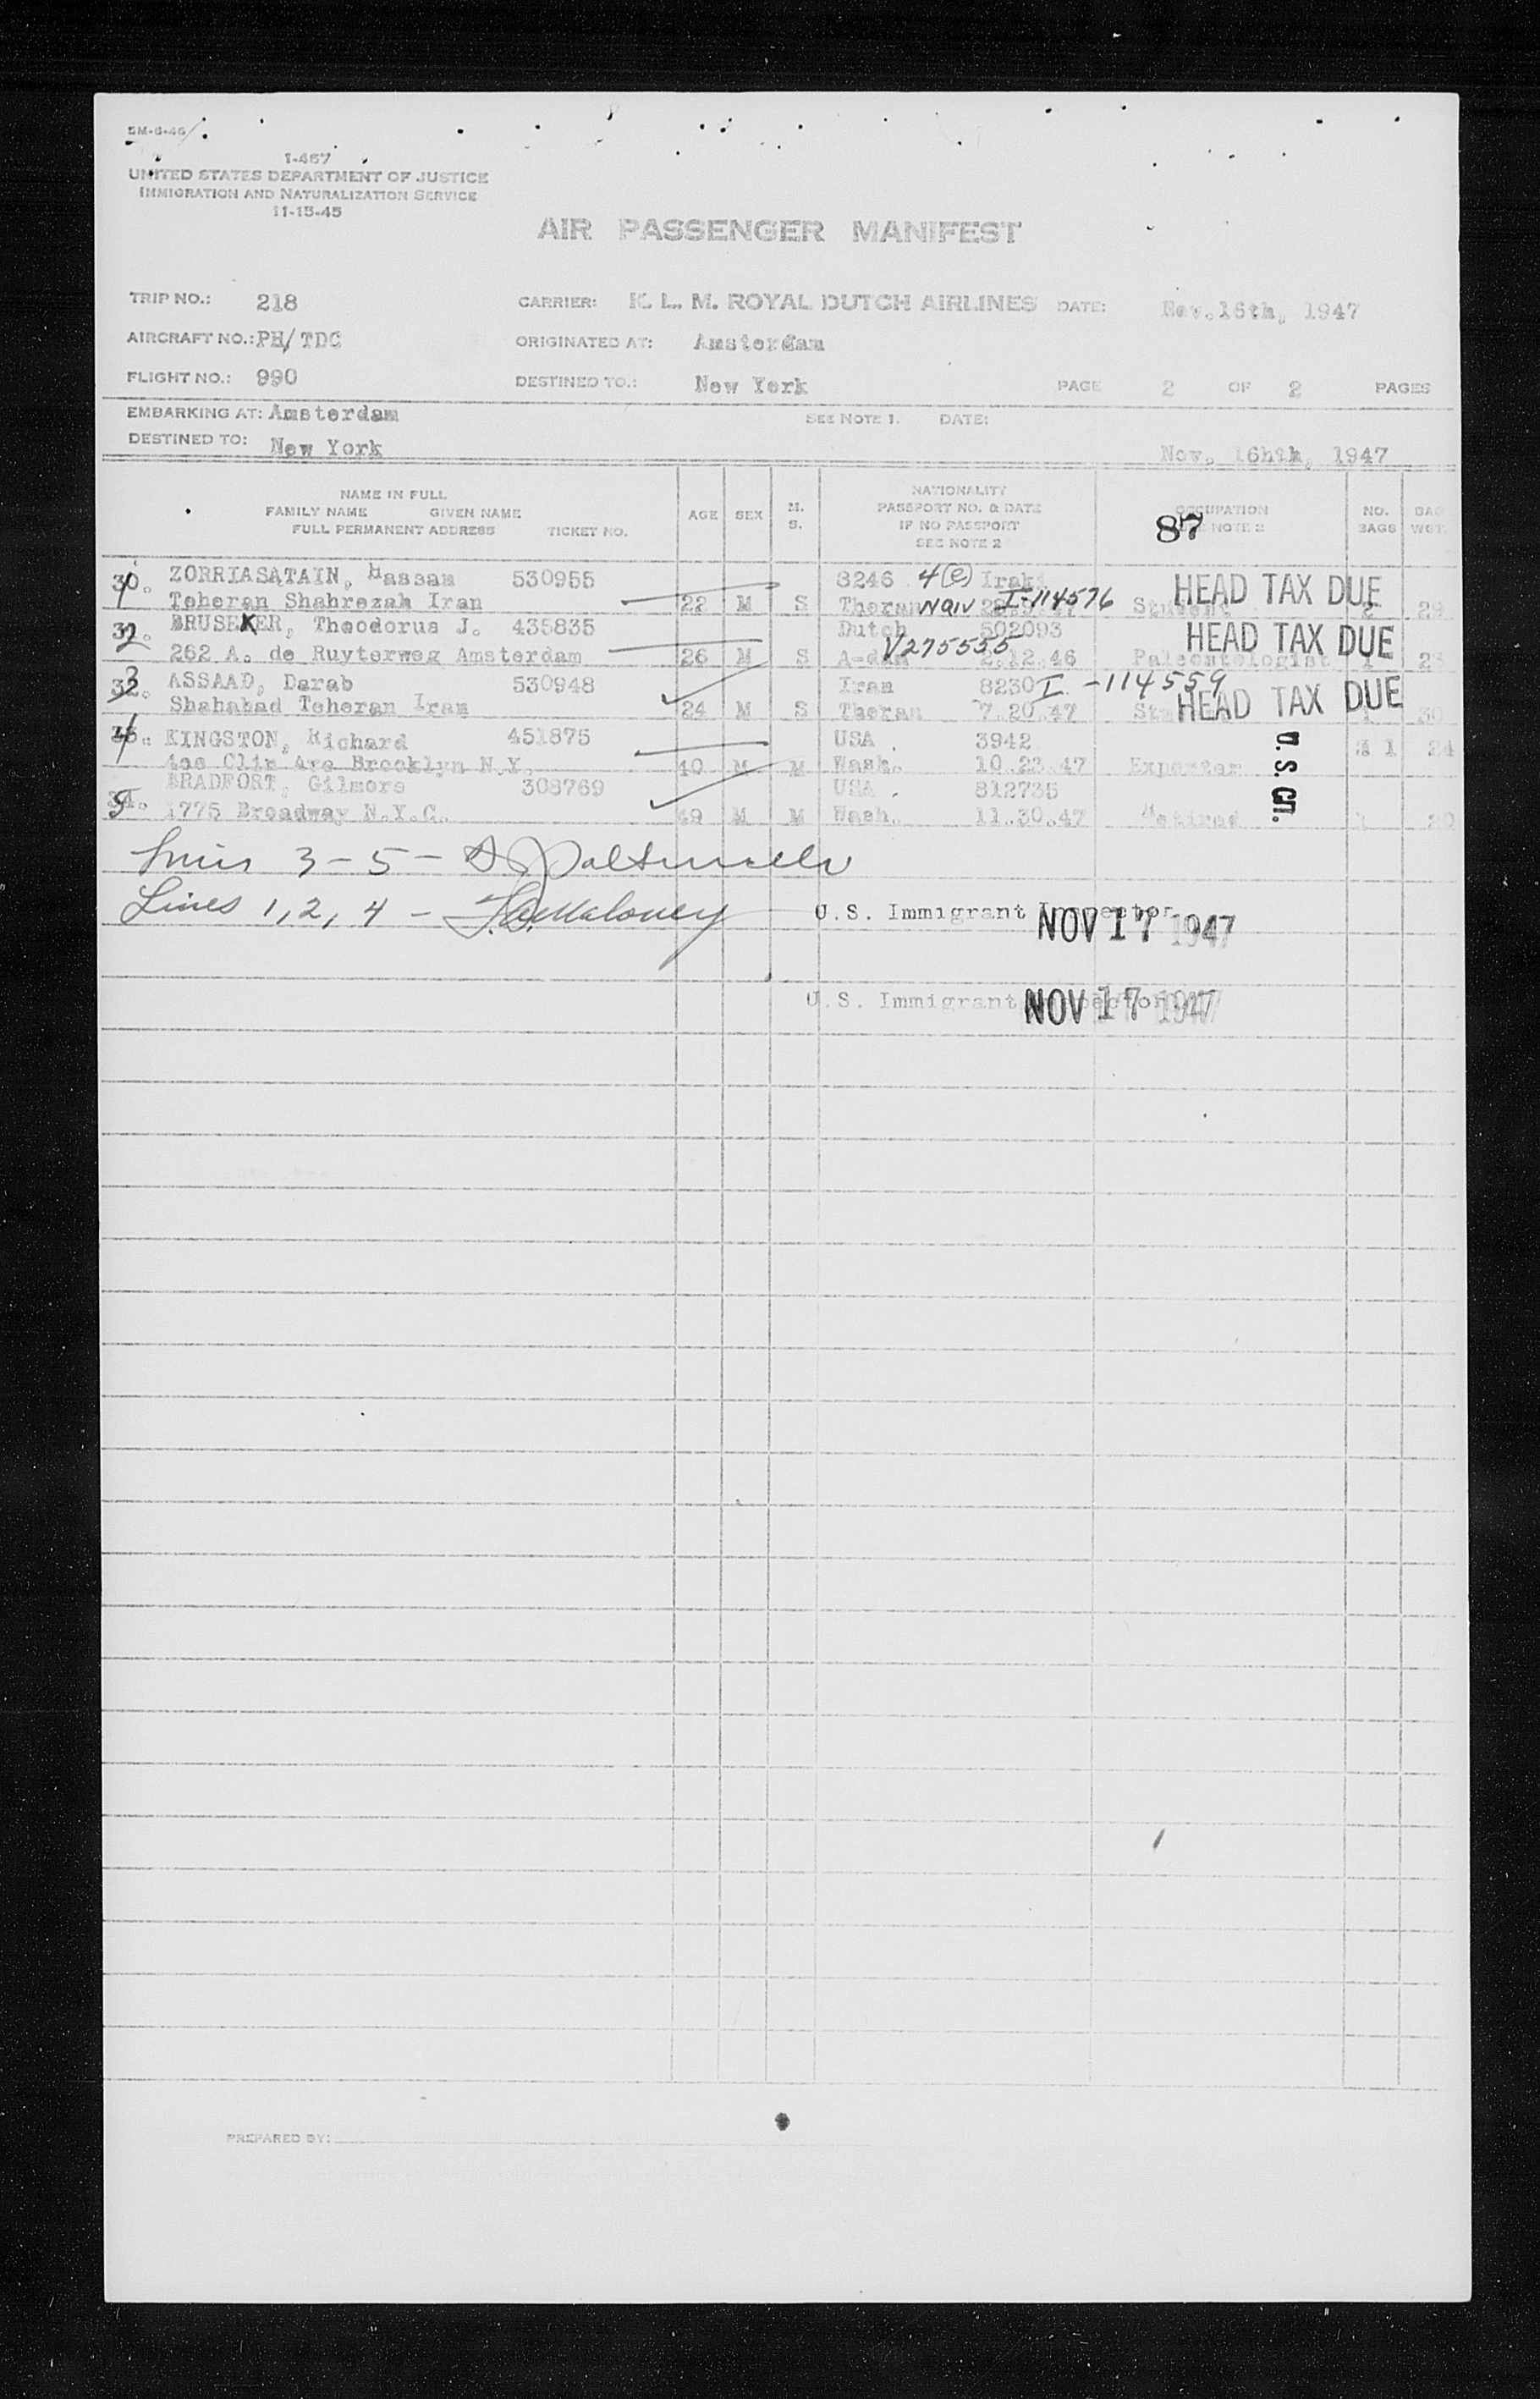 5M-6-46
I-467
UNITED STATES DEPARTMENT OF JUSTICE
IMMIGRATION AND NATURALIZATION SERVICE
11-15-45
AIR PASSENGER MANIFEST
TRIP NO.: 218 CARRIER: K. L. M. ROYAL DUTCH AIRLINES DATE: Nov.16th, 1947
AIRCRAFT NO.: PH/TDC ORIGINATED AT: Amsterdam
FLIGHT NO.: 990 DESTINED TO.: New York PAGE 2 OF 2 PAGES
EMBARKING AT: Amsterdam SEE NOTE 1. DATE:
DESTINED TO: New York Nov. 16hth, 1947
NAME IN FULL
FAMILY NAME GIVEN NAME
FULL PERMANENT ADDRESS TICKET NO.
AGE SEX M. S.
NATIONALITY
PASSPORT NO. & DATE
IF NO PASSPORT
SEE NOTE 2
OCCUPATION
NOTE 2
87
NO. BAGS
BAG WGT.
30. 1 ZORRIASATAIN, Hassan 530955 8246 4(e) Irak HEAD TAX DUE
Teheran Shahrezah Iran 22 M S Theran I-114576 Student 2
2 BRUSEKER, Theodorus J. 435835 Dutch 502093 HEAD TAX DUE
262 A. de Ruyterweg Amsterdam 26 M S A-dam V275555 2.12.46 Paleontologist 1
32. 3 ASSAAD, Darab 530948 Iran 8230 I-114559
Shahabad Teheran Iran 24 M S Theran 7.20.47 HEAD TAX DUE 1 30
4 KINGSTON, Richard 451875 USA. 3942 1 24
Ave Brooklyn N.Y. 40 M M Wash. 10.23.47 Exporter U.S.CIT.
5 BRADFORT, Gilmore 308769 USA. 812735
1775 Broadway N.Y.C. 49 M M Wash. 11.30.47 Retired 1 20
Lines 3-5 -
Lines 1, 2, 4 - Maloney U.S. Immigrant Inspector NOV 17 1947
U.S. Immigrant Inspector NOV 17 1947
PREPARED BY: